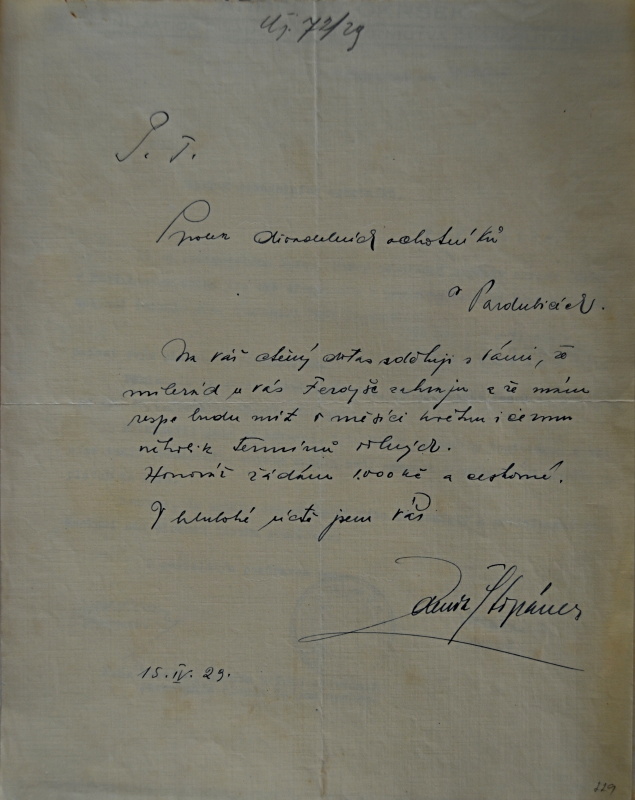 Čj. 72/29
P. T.
Spolek divadelních ochotníků
v Pardubicích.
Na Váš ctěný dotaz sděluji s Vámi, že
milerád u Vás Ferdyše zahraju a že mám
resp. budu mít v měsíci květnu i červnu
několik termínů volných.
Honorář žádám 1.000 Kč a cestovné.
V hluboké úctě jsem Váš
Zdeněk Štěpánek
15. IV. 29.
229